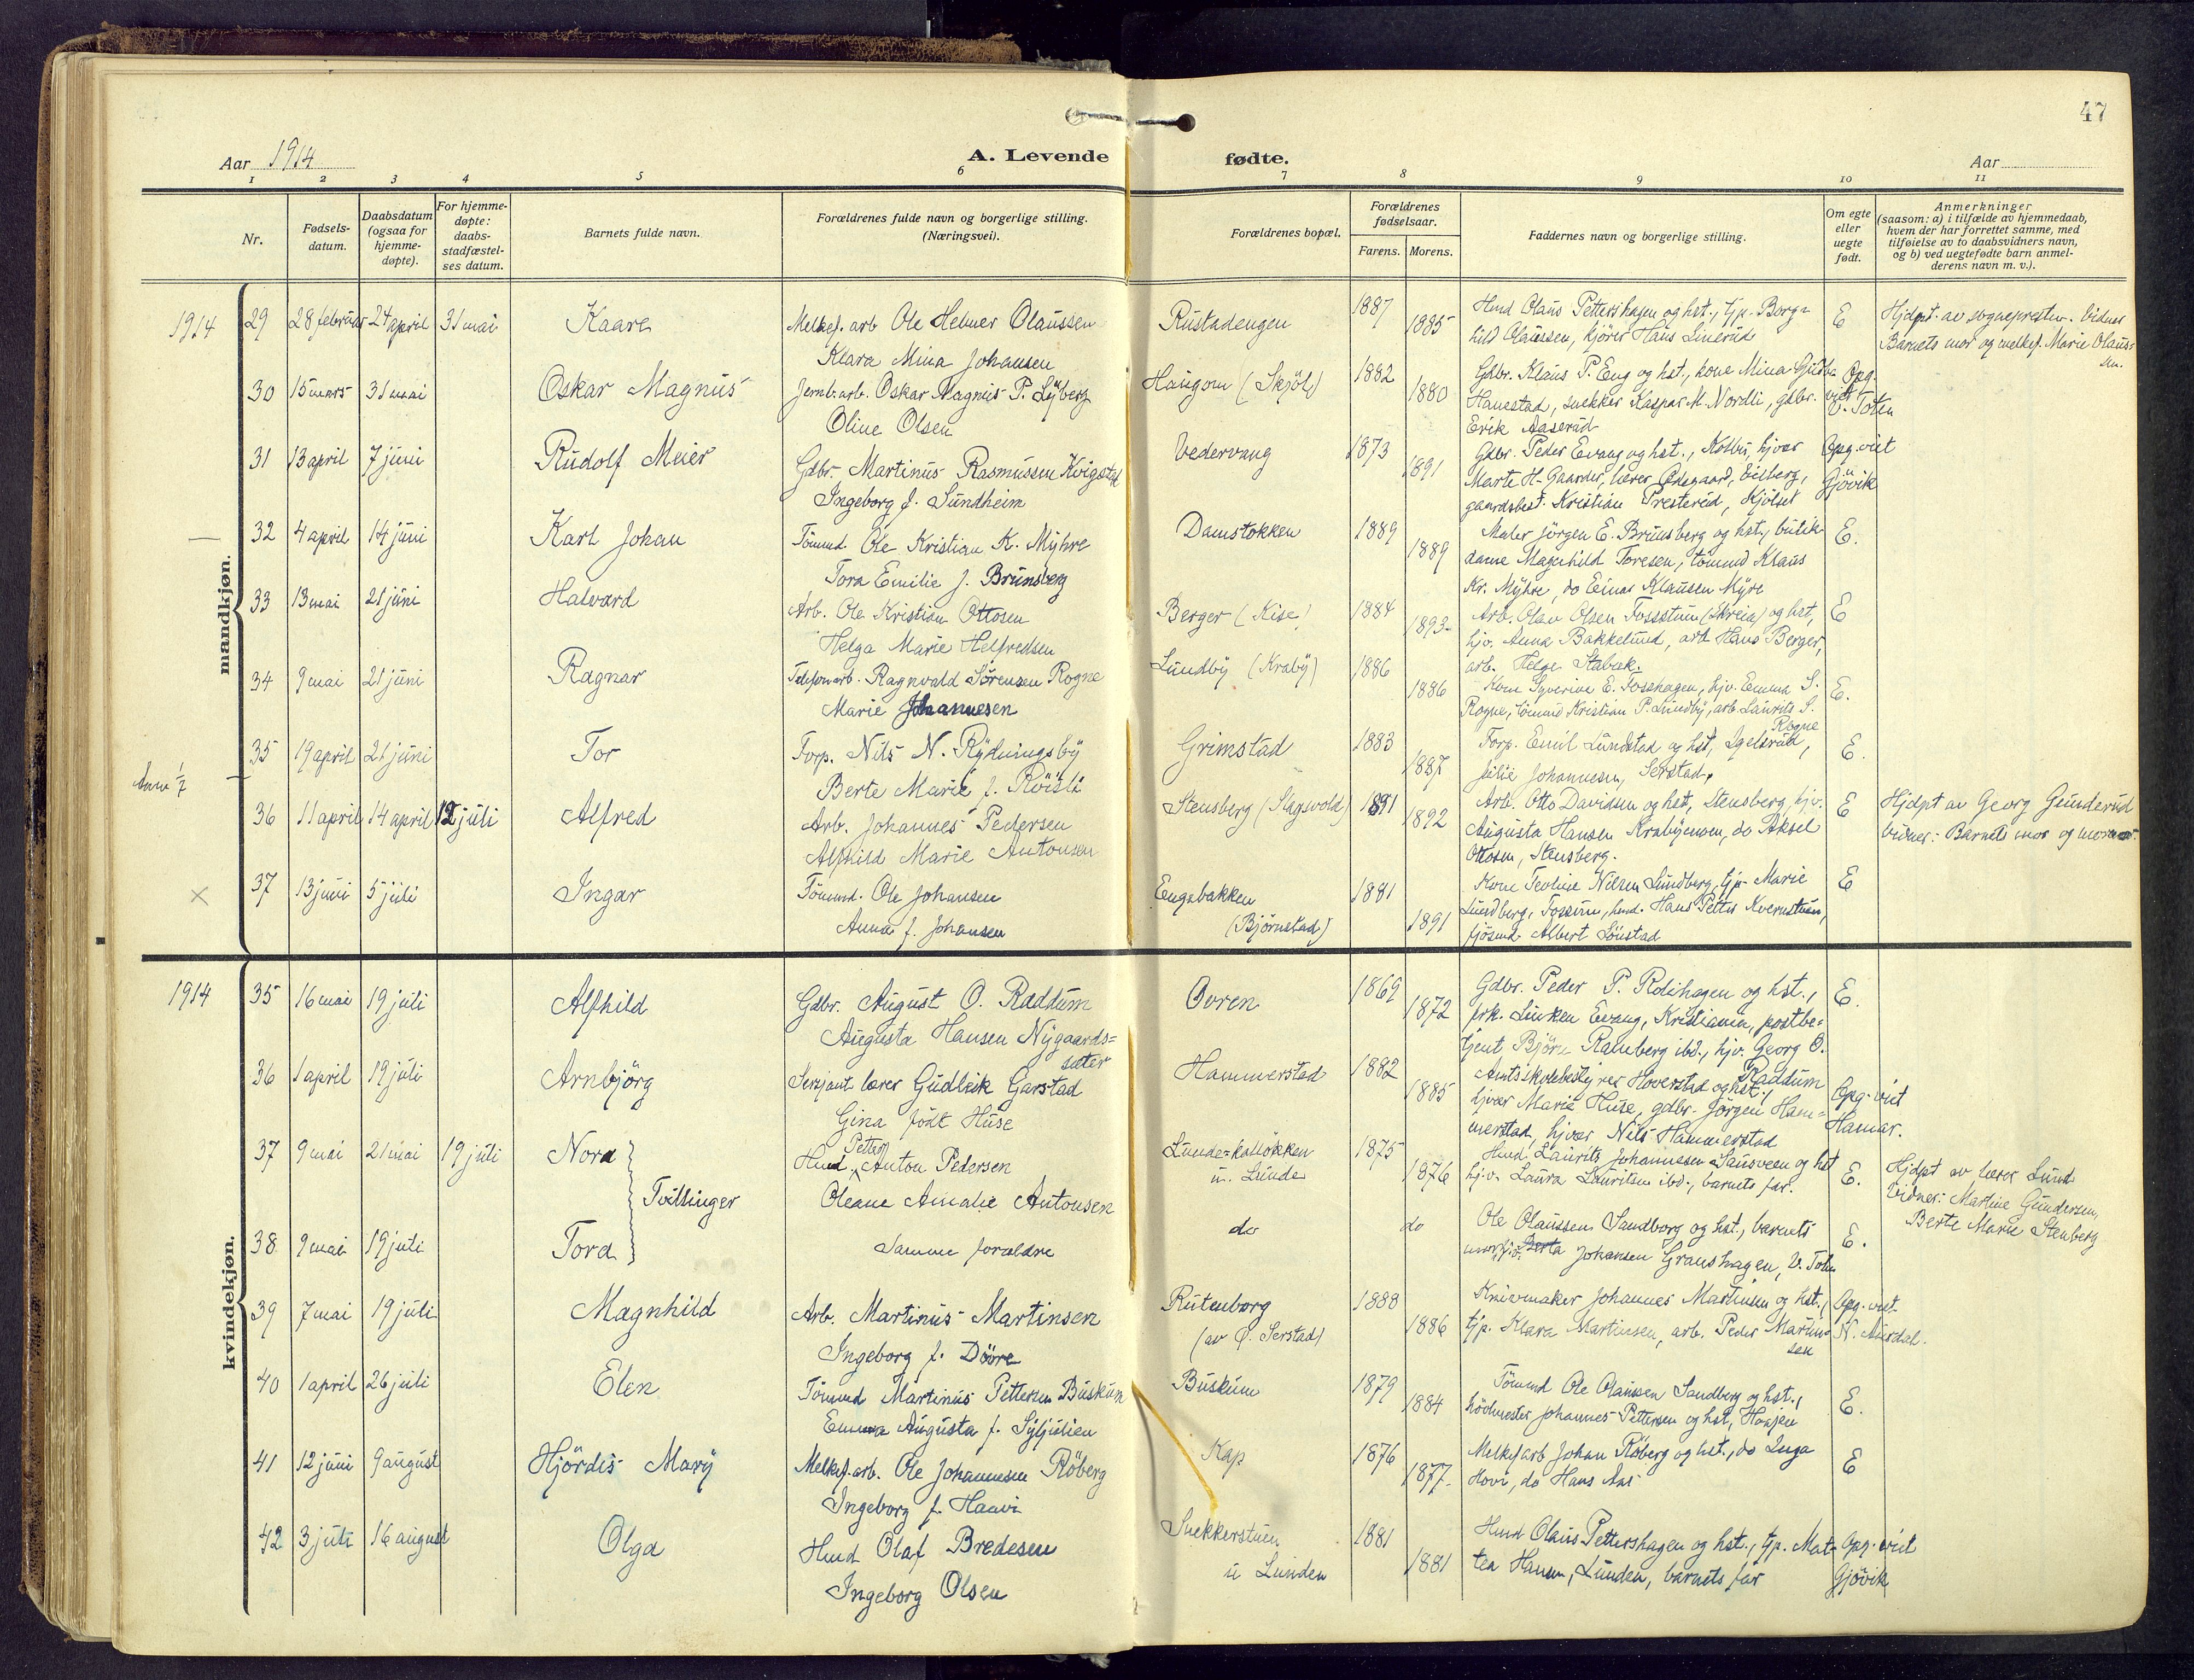 47
Aar 1914
A. Levende fødte.
Aar
1 2 3 4 5 6 7 8 9 10 11
Nr.
Fødsels-
datum.
Daabsdatum
(ogsaa for
hjemme-
døpte).
For hjemme-
døpte:
daabs-
stadfæstel-
ses datum.
Barnets fulde navn.
Forældrenes fulde navn og borgerlige stilling.
(Næringsvei).
Forældrenes bopæl.
Forældrenes
fødselsaar.
Farens. Morens.
Faddernes navn og borgerlige stilling.
Om egte
eller
uegte
født.
Anmerkninger
(saasom: a) i tilfælde av hjemmedaab,
hvem der har forrettet samme, med
tilføielse av to daabsvidners navn,
og b) ved uegtefødte barn anmel-
derens navn m. v.).
mandkjøn.
1914 29 28 februar 24 april 31 mai Kaare Melkef. arb Ole Helmer Olaussen
Klara Mina Johansen
Rustadengen 1887 1885
Hmd Olaus Pettershagen og hst., tjp. Borg-
hild Olaussen, kjörer Hans Linerud
E
Hjdpt. av sognepresten. Vidner
Barnets mor og melkef. Marie Olaus-
sen.
30 15 mars 31 mai Oskar Magnus Jernb.arb. Oskar Magnus P. Lyberg
Oline Olsen
Haugom (Skjöl) 1882 1880
Gdbr. Klaus P. Eng og hst., kone Mina
Hanestad, snekker Kaspar M. Nordli, gdbr.
Erik Aaserud
Opg.
viet
V. Toten
31 13 april 7 juni Rudolf Meier Gdbr. Martinus Rasmussen Kvigstad
Ingeborg f. Sundheim
Vedervang 1873 1891
Gdbr. Peder Evang og hst., Kolbu, hjver
Marte H. Gaarder, lærer Ödegaard, Eidberg,
gaardsbest. Kristian Presterud, Kjölset
Opg. viet
Gjövik
32 4 april 14 juni Karl Johan Tömmd. Ole Kristian K. Myhre
Tora Emilie f. Brunsberg
Damstokken 1889 1889
Maler Jörgen E. Brunsberg og hst., butik-
dame Magnhild Toresen, tömmd Klaus
Kr. Myhre, do Einar Klausen Myre
E.
33 13 mai 21 juni Halvard Arb. Ole Kristian Ottosen
Helga Marie Helfredsen
Berger (Kise) 1884 1893
Arb. Olav Olsen Fossstuen (Skreia) og hst,
hjv. Anna Bakkelund, arb Hans Berger,
arb. Helge Stabæk.
E
34 9 mai 21 juni Ragnar Telefonarb. Ragnvald Sörensen Rogne
Marie Johannesen
Lundby (Kraby) 1886 1886
Kone Syverine E. Fosshagen, hjv. Emma S.
Rogne, tömmd Kristian P. Lundby, arb. Laurits S.
Rogne
E.
35 19 april 21 juni Tor Forp. Nils N. Rydningsby
Berte Marie f. Röisli
Grimstad 1883 1887
Forp. Emil Lundstad og hst, Igelsrud,
Julie Johannesen, Serstad.
E.
36 11 april 14 april 12 juli Alfred Arb. Johannes Pedersen
Alfhild Marie Antonsen
Stensberg (Slagsvold) 1891 1892
Arb. Otto Davidsen og hst, Stensberg, hjv.
Augusta Hansen Krabyenven, do Aksel
Ottosen, Stensberg.
E
Hjdpt av Georg Gunderud
Vidner: Barnets mor og mormor.
× 37 13 juni 5 juli Ingar Tömmd. Ole Johansen
Anna f. Johansen
Engebakken
(Björnstad)
1881 1891
Kone Teoline Nilsen Lundberg, tjp. Marie
Lundberg, Fossum, hmd. Hans Petter Kvernstuen,
fjösmd. Albert Lönstad
E
kvindekjøn.
1914 35 16 mai 19 juli Alfhild Gdbr. August O. Raddum
Augusta Hansen Nygaards-
sæter
Ovren 1869 1872
Gdbr. Peder P. Roisihagen og hst.,
frk. Linken Evang, Kristiania, postbe-
tjent Björn Ramberg ibd., hjv. Georg O.
Raddum
E.
36 1 april 19 juli Arnbjörg Sersjant lærer Gudleik Garstad
Gina födt Huse
Hammerstad 1882 1885
Amtsskolebestyrer Hoverstad og hst.,
hjver Marie Huse, gdbr. Jörgen Ham-
merstad, hjver Nils Hammerstad
Opg. viet
Hamar.
37 9 mai 21 mai 19 juli Nora Hmd. Petter Anton Pedersen
Oleane Amalie Antonsen
Tvillinger
Lunde-kalløkken
u. Lunde
1875 1876
Hmd Laurits Johannesen Sausveen og hst
hjv. Laura Lauritsen ibd., barnets far.
E.
Hjdpt av lærer Lund
Vidner: Martine Gundersen,
Berte Marie Stenberg
38 9 mai 19 juli Tora Samme forældre
do do
Ole Olaussen Sandborg og hst., barnets
Johansen Graushagen, V. Toten
E.
39 7 mai 19 juli Magnhild Arb. Martinus Martinsen
Ingeborg f. Dövre
Rutenborg
(av Ö. Serstad)
1888 1886
Knivmaker Johannes Martinsen og hst.,
tjp. Klara Martinsen, arb. Peder Martin-
sen
Opg. viet
N. Aurdal.
40 1 april 26 juli Elen Tömmd Martinus Pettersen Buskum
Emma Augusta f. Syljulien
Buskum 1879 1884
Tömmd Ole Olaussen Sandberg og hst.,
Johannes Pettersen og hst,
E.
41 12 juni 9 august Hjördis Mary Melkef. arb. Ole Johannesen Röberg
Ingeborg f. Haavi
Kap 1876 1877
Melkef arb Johan Röberg og hst., do Inga
Hovi, do Hans Aas
E
42 3 juli 16 august Olga Hmd Olaf Bredesen
Ingeborg Olsen
Snekkerstuen
u Lunden
1881 1881
Hmd Olaus Pettershagen og hst., tjp. Mat-
tea Hansen, Lunden, barnets far
Opg. viet
Gjövik